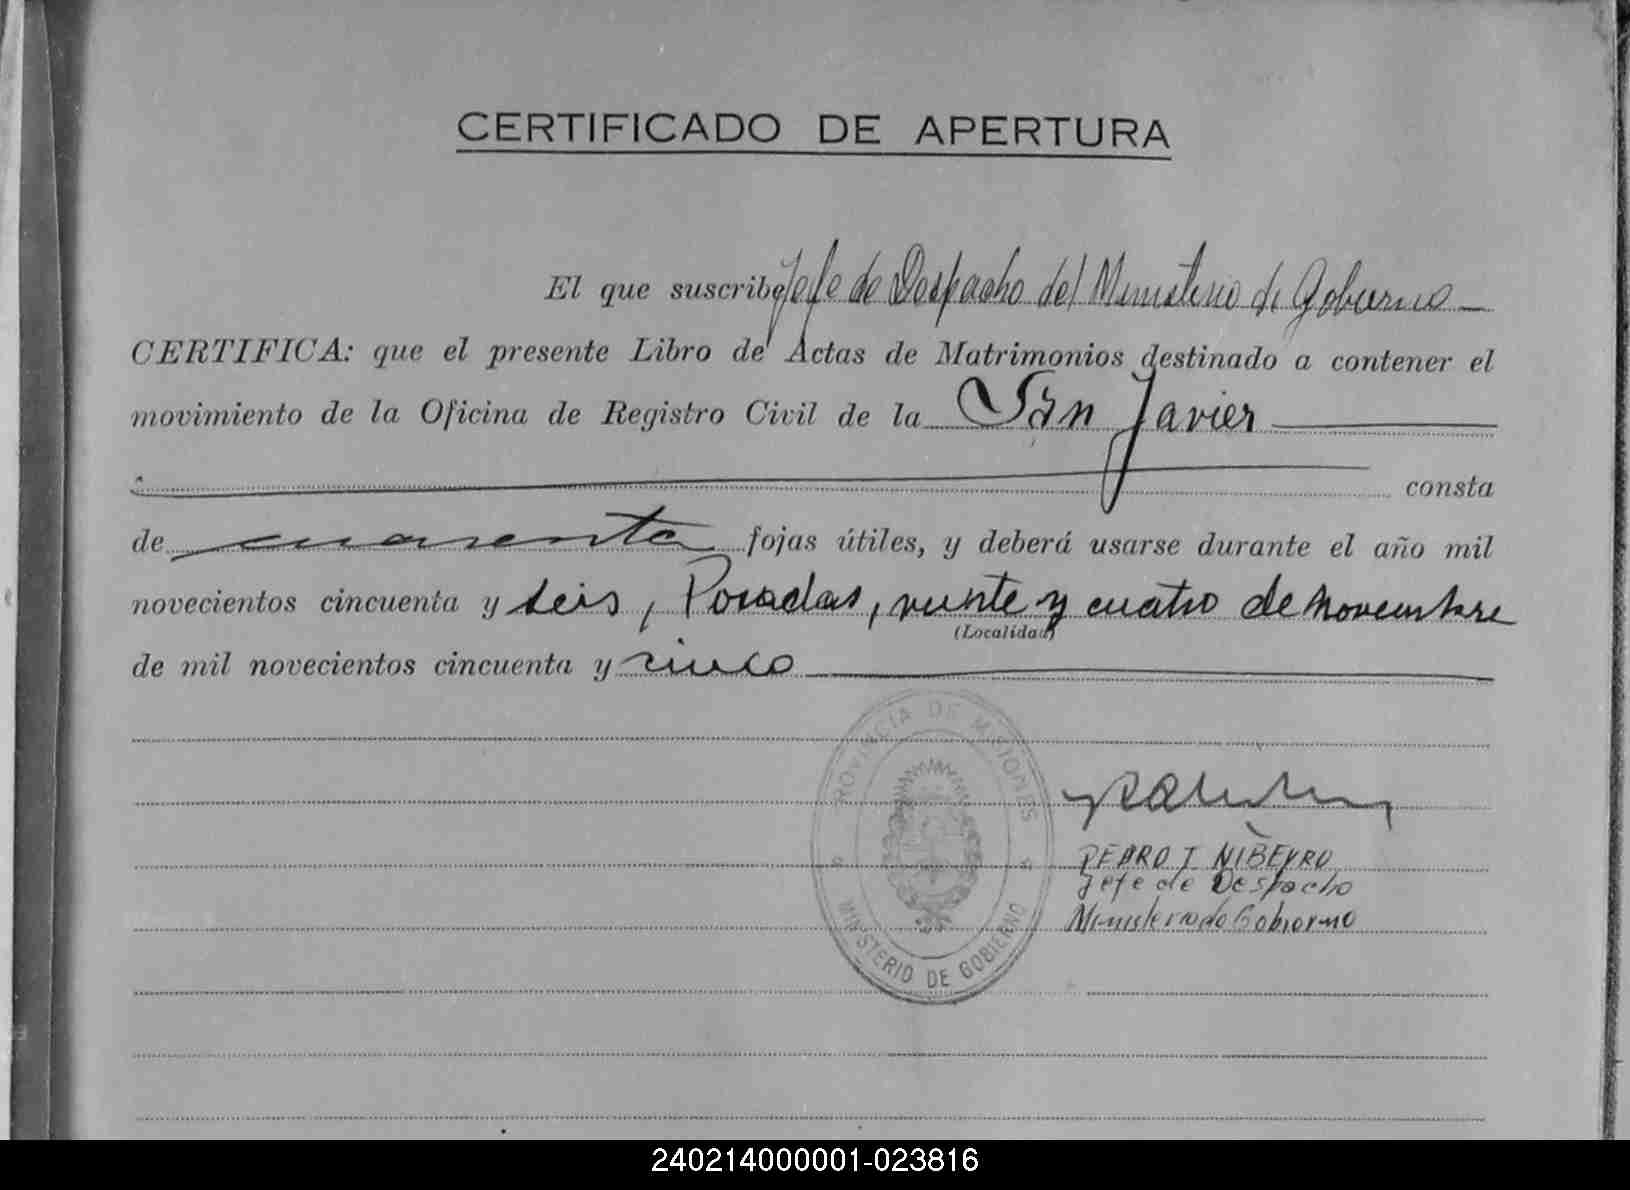 CERTIFICADO DE APERTURA
El que suscribe Jefe de Despacho del Ministerio de Gobierno
CERTIFICA: que el presente Libro de Actas de Matrimonios destinado a contener el
movimiento de la Oficina de Registro Civil de la San Javier
consta
de cuarenta fojas útiles, y deberá usarse durante el año mil
novecientos cincuenta y seis, Posadas, veinte y cuatro de noviembre
(Localidad)
de mil novecientos cincuenta y cinco
PROVINCIA DE MISIONES
MINISTERIO DE GOBIERNO
PEDRO I NIBEYRO
Jefe de Despacho
Ministerio de Gobierno
240214000001-023816